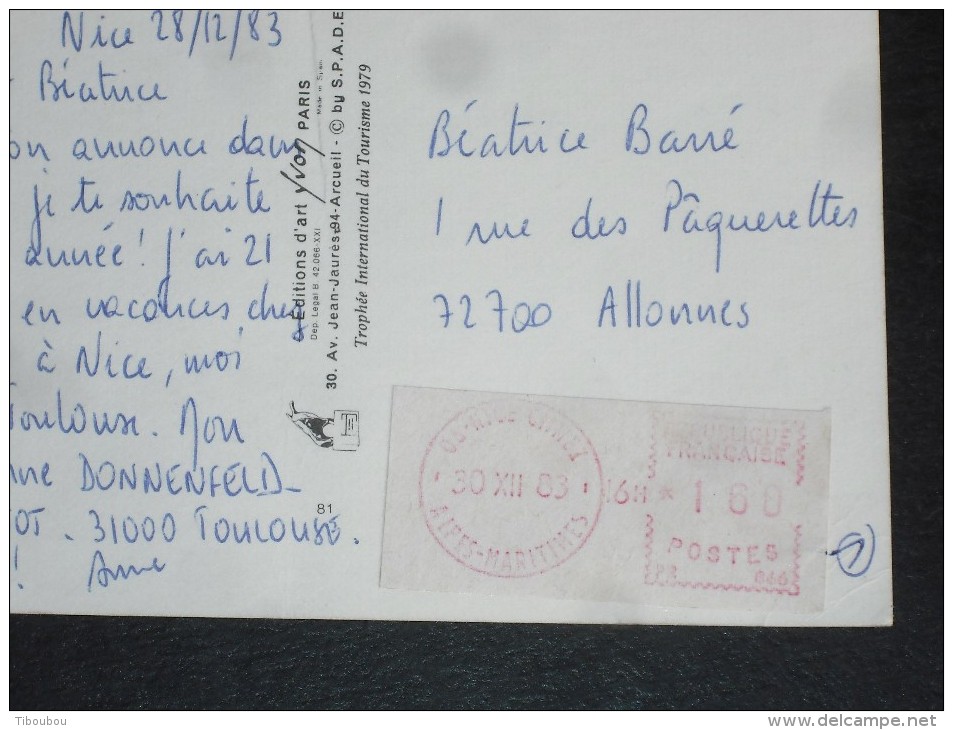 Nice 28/12/83
Béatrice
on annonce dans
je te souhaite
année ! J'ai 21
en vacances chez
à Nice, moi
Toulouse. Mon
DONNENFELD
OT. 31000 TOULOUSE.
! Anne
Editions d'art Yvon PARIS
Made in Spain
Dep. Legal B. 42.066-XXI
30. Av. Jean-Jaurès-94-Arcueil - © by S.P.A.D.E
Trophée International du Tourisme 1979
81
Béatrice Barré
1 rue des Pâquerettes
72700 Allonnes
30 XII 83
ALPES-MARITIMES
16H * 1 60
REPUBLIQUE
FRANÇAISE
POSTES
Tiboubou
www.delcampe.net